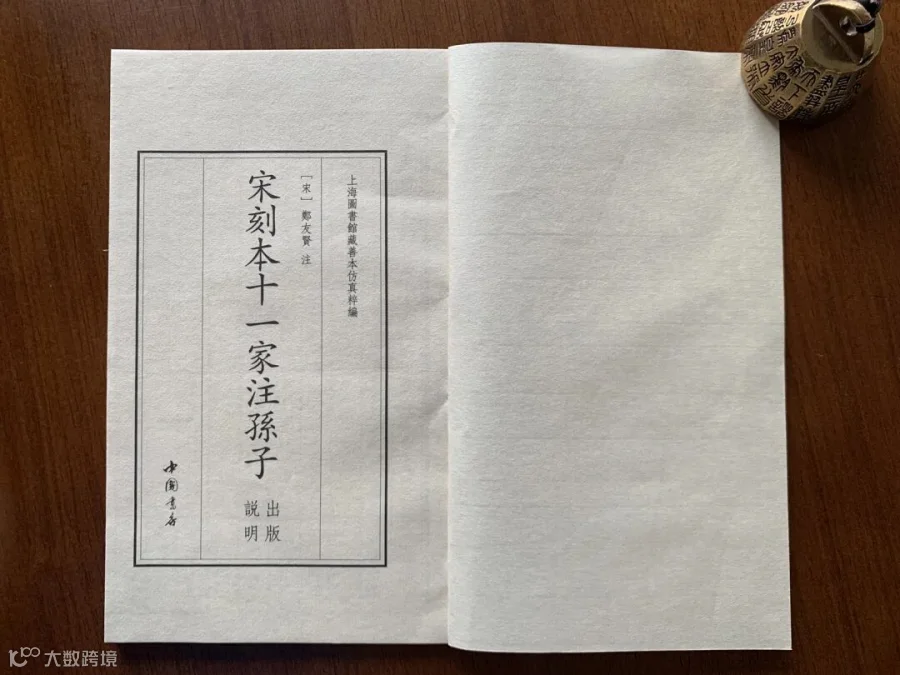 上海圖書館藏善本仿真粹編
［宋］鄭友賢 注
宋刻本十一家注孫子
出版
説明
中國書店
大数跨境